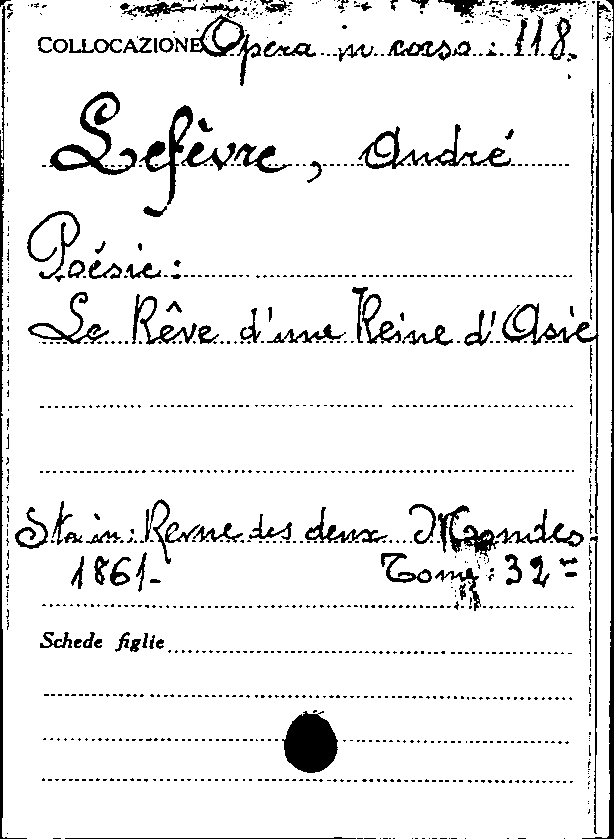 COLLOCAZIONE Opera in corso : 118.
Lefèvre, André
Poésie :
Le Rêve d'une Reine d'Asie
Sta in : Revue des deux Mondes.
1861- Tome : 32
Schede figlie